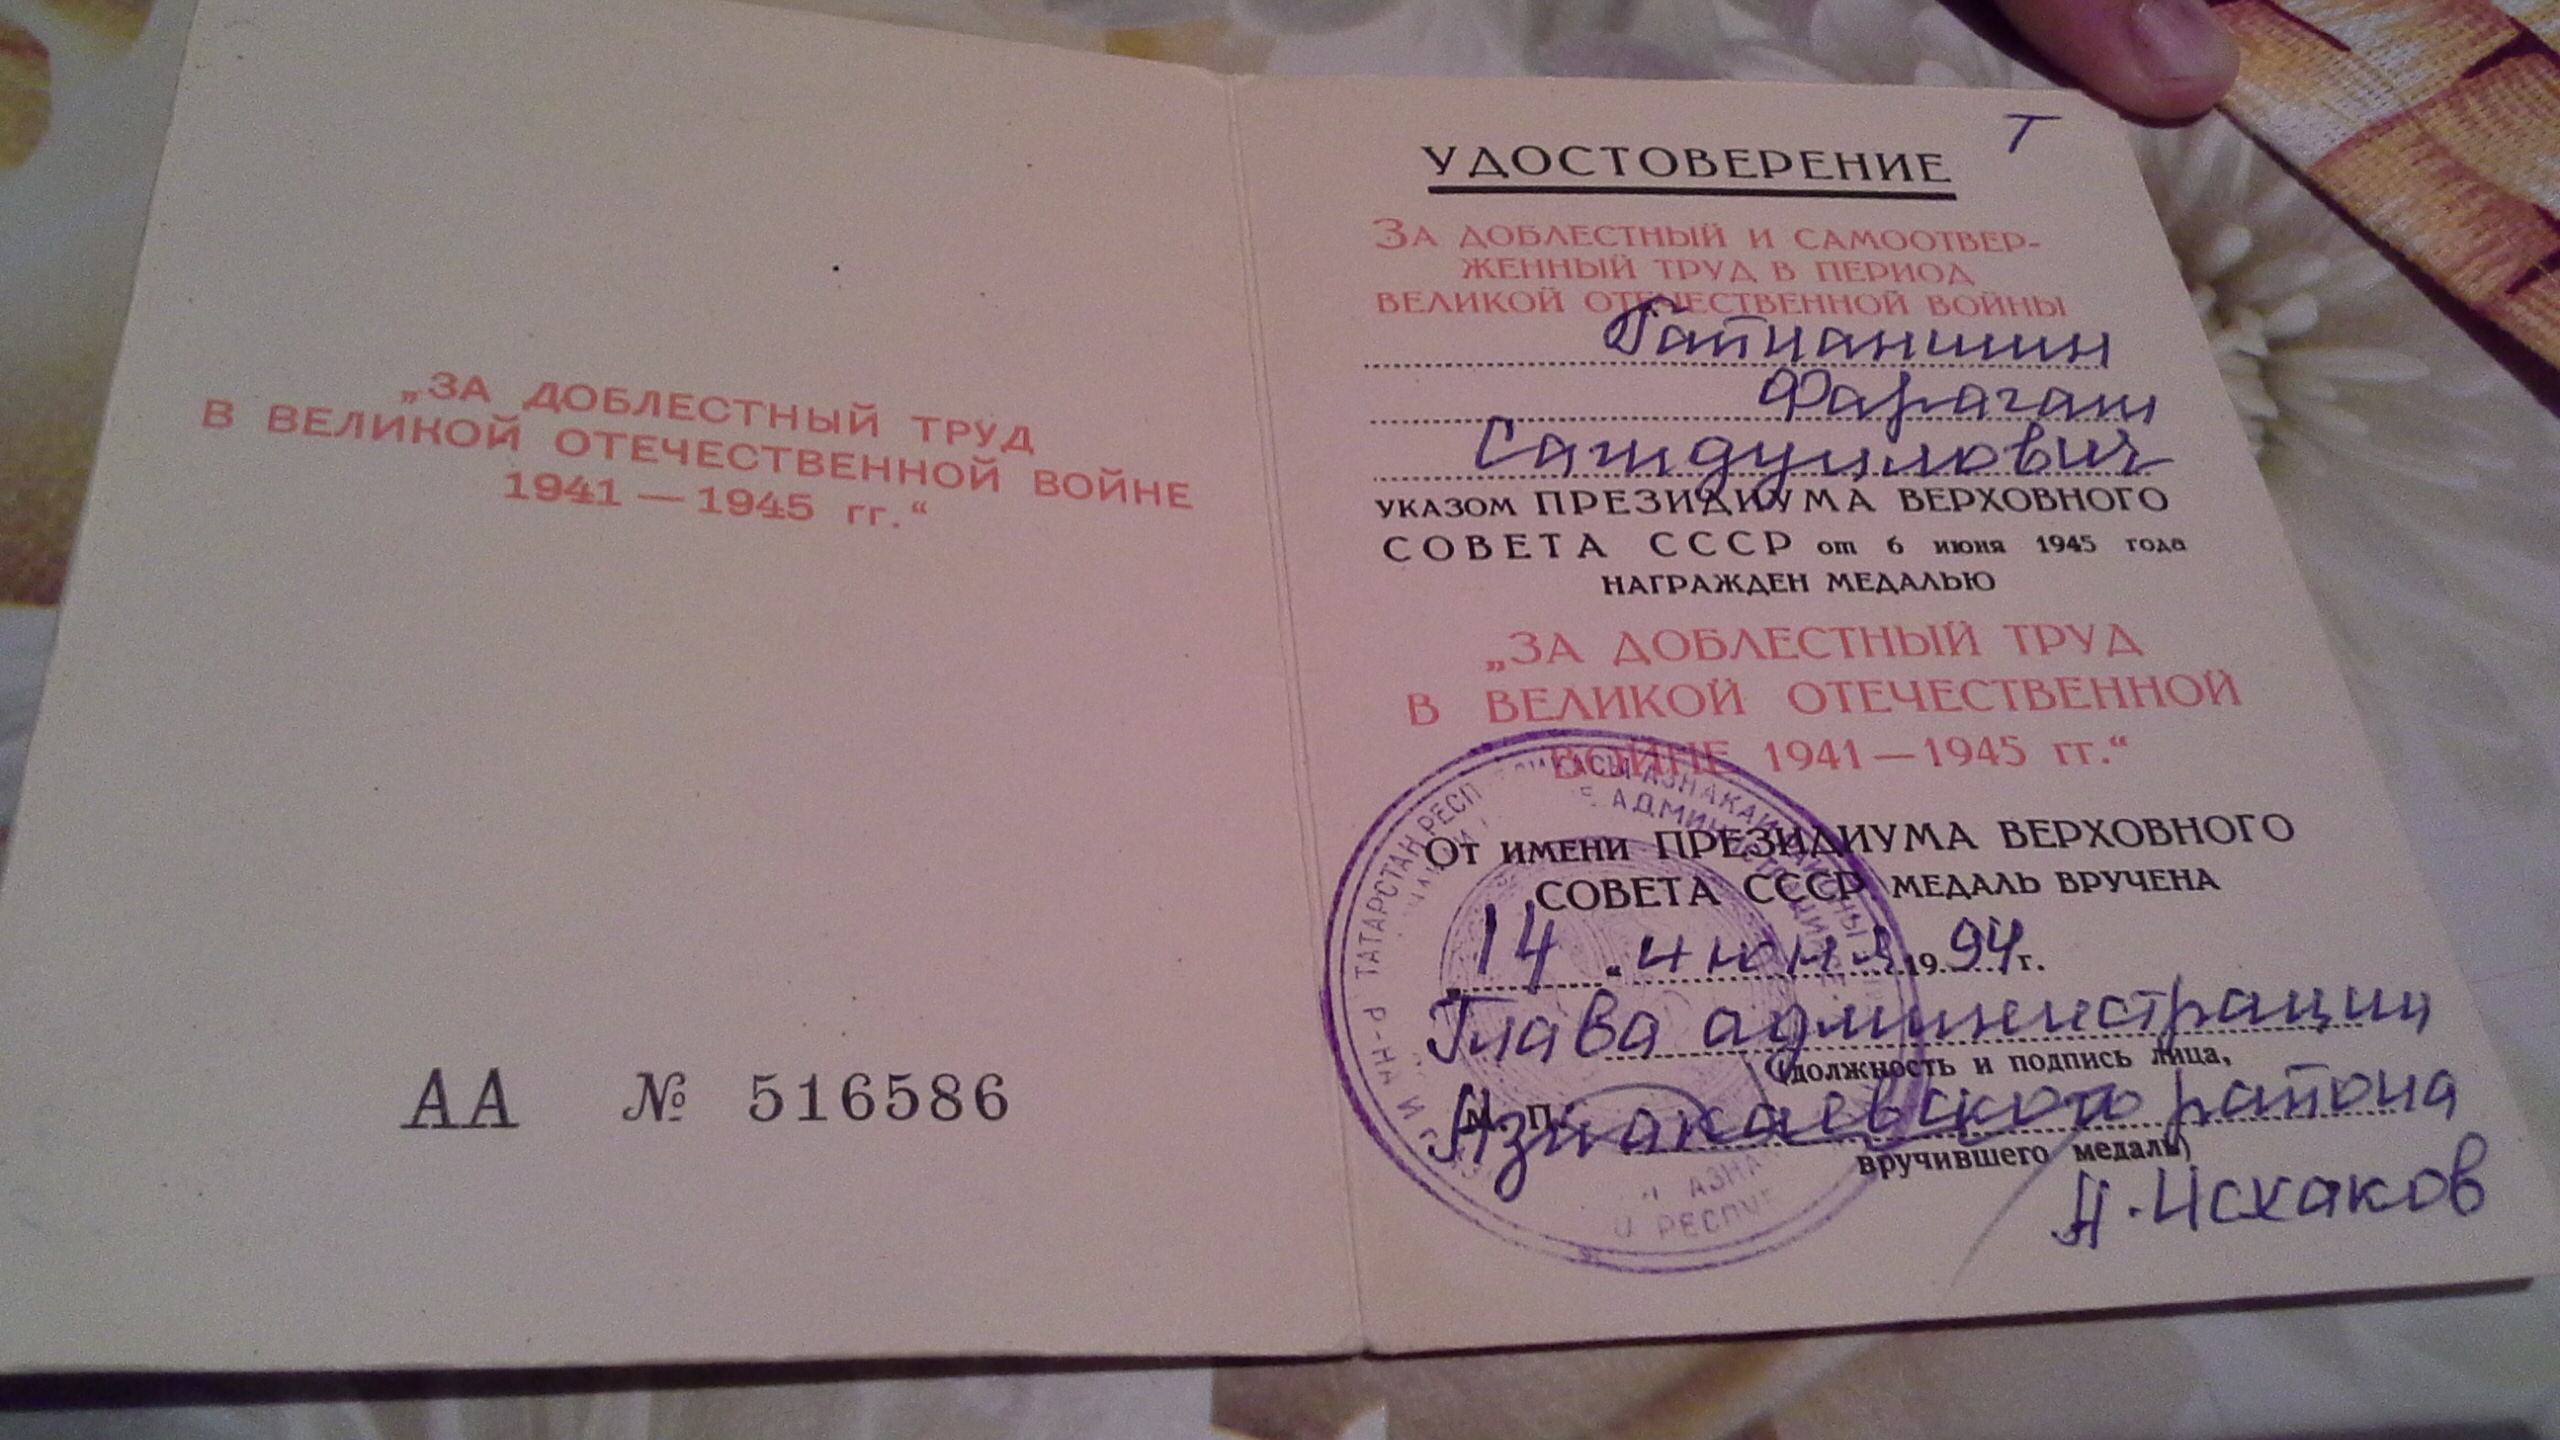 „ЗА ДОБЛЕСТНЫЙ ТРУД
В ВЕЛИКОЙ ОТЕЧЕСТВЕННОЙ ВОЙНЕ
1941 — 1945 гг.“
АА № 516586
Т
УДОСТОВЕРЕНИЕ
ЗА ДОБЛЕСТНЫЙ И САМООТВЕР-
ЖЕННЫЙ ТРУД В ПЕРИОД
ВЕЛИКОЙ ОТЕЧЕСТВЕННОЙ ВОЙНЫ
Гатианшин
Фарагат
Сагдуллович
УКАЗОМ ПРЕЗИДИУМА ВЕРХОВНОГО
СОВЕТА СССР от 6 июня 1945 года
НАГРАЖДЕН МЕДАЛЬЮ
„ЗА ДОБЛЕСТНЫЙ ТРУД
В ВЕЛИКОЙ ОТЕЧЕСТВЕННОЙ
ВОЙНЕ 1941 — 1945 гг.“
ОТ ИМЕНИ ПРЕЗИДИУМА ВЕРХОВНОГО
СОВЕТА СССР МЕДАЛЬ ВРУЧЕНА
14 июня 1994 г.
Глава администрации
(должность и подпись лица,
М. П. Азнакаевского района
вручившего медаль)
Н. Исхаков